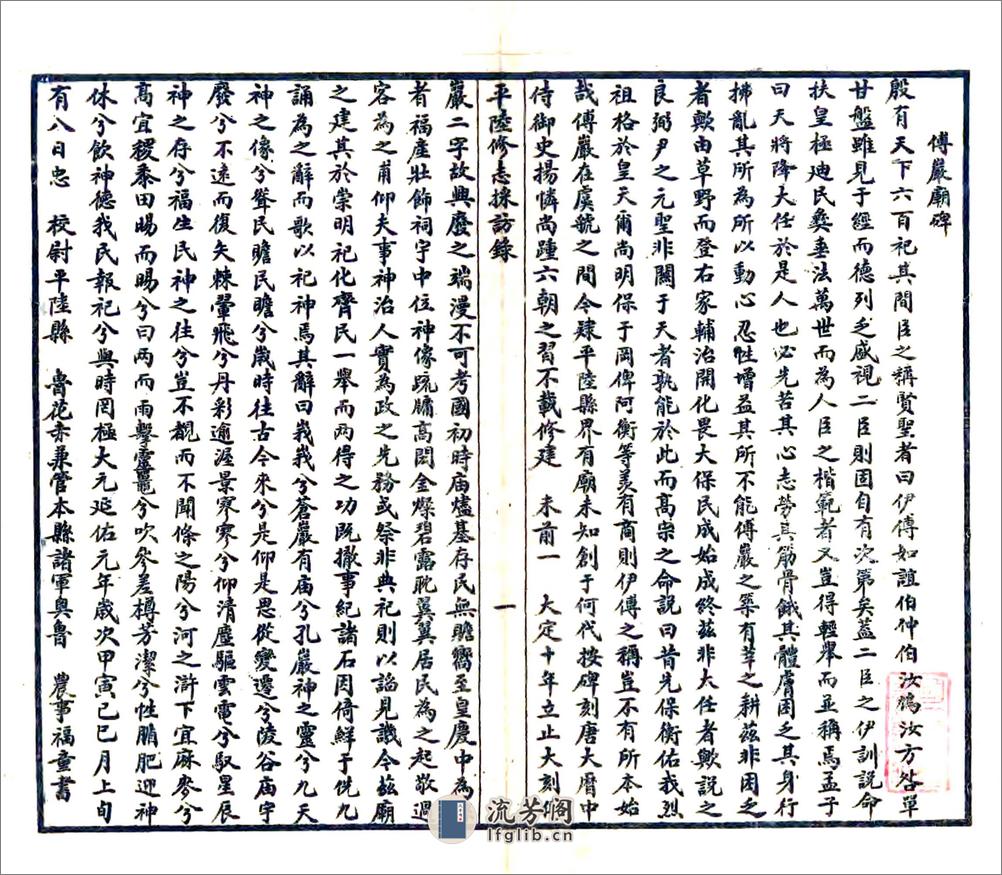 傅巖廟碑
殷有天下六百祀其間臣之講賢聖者曰伊傅如誼伯仲伯汝鳩汝方咎單
甘盤雖見于經而德列乏盛視二臣則固自有次第矣蓋二臣之伊訓說命
扶皇極迪民彜垂法萬世而為人臣之楷範者又豈得輕舉而並稱焉孟子
曰天將降大任於是人也必先苦其心志勞其筋骨餓其體膚困乏其身行
拂亂其所為所以動心忍性增益其所不能傅巖之築有莘之耕茲非困乏
者歟由草野而登右家輔治開化畏大保民成始成終茲非大任者歟說之
良弼尹之元聖非關于天者孰能於此而高宗之命説曰昔先保衡佑我烈
祖格於皇天爾尚明保于岡俾阿衡等美有商則伊傅之稱豈不有所本始
哉傅巖在虞虢之間令隸平陸縣界有廟未知創于何代按碑刻唐大曆中
侍御史揚憐尚踵六朝之習不載修建 未前一 大定十年立止大刻傅
平陸修志採訪錄
一
巖二字故興廢之端漫不可考國初時庙爐基存民無瞻嚮至皇慶中為
者福產壯飾祠宇中位神像疏牖高閎金燦碧露耽翼翼居民為之起敬過
容為之甫仰夫事神治人實為政之先務或祭非典祀則以謟見譏今茲廟
之建其於崇明祀化齊民一舉而两得之功既撤事紀諸石因倚鮮于侁九
誦為之辭而歌以祀神焉其辭曰峩峩兮蒼巖有庙兮孔巖神之靈兮九天
神之像兮聳民瞻民瞻兮歲時往古今來兮是仰是思從變遷兮陵谷庙宇
廢兮不遠而復矢棘翬飛兮丹彩逾渥景寒寒兮仰清塵驅雲電兮馭星辰
神之存兮福生民神之往兮豈不覩而不聞條之陽兮河之滸下宜麻麥兮
高宜稷黍田暘而暘兮曰两而雨擊靈鼉兮吹參差樽芳潔兮性腯肥迎神
休兮飲神德我民報祀兮與時罔極大元延佑元年歲次甲寅己巳月上旬
有八日忠 校尉平陸縣 魯花赤兼管本縣諸軍奥魯 農事福童書
流芳阁
lfglib.cn